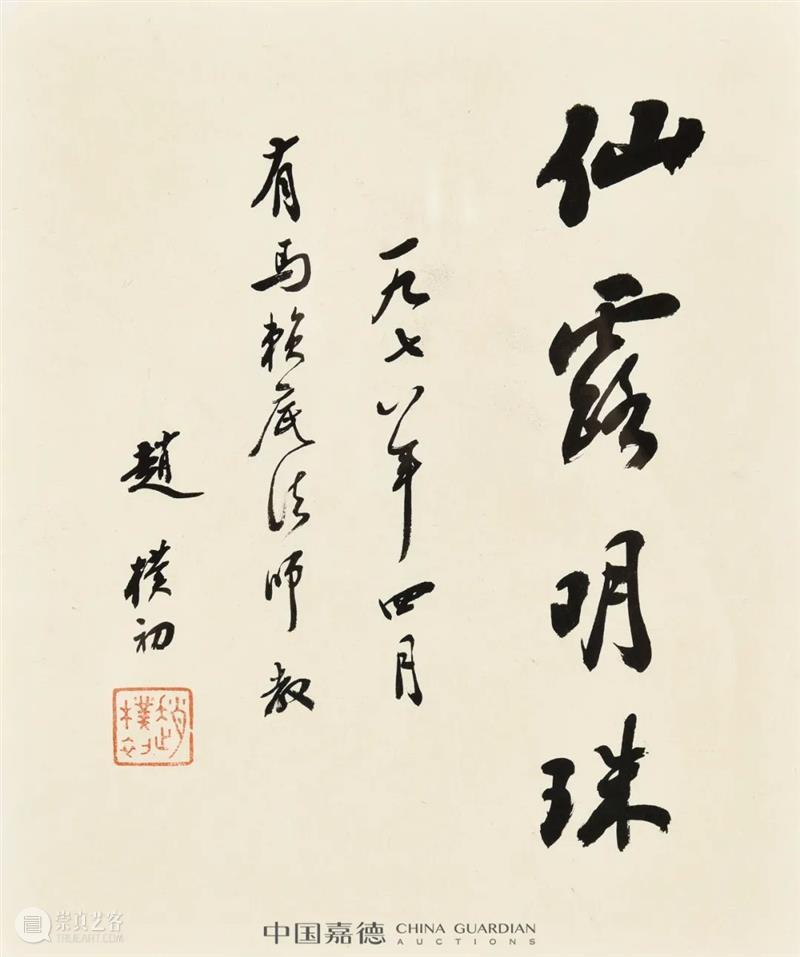 仙露明珠
一九七八年四月
有马赖底法师教
趙樸初
趙樸初
崇真艺客
TRUEART.COM
中国嘉德 CHINA GUARDIAN
AUCTIONS